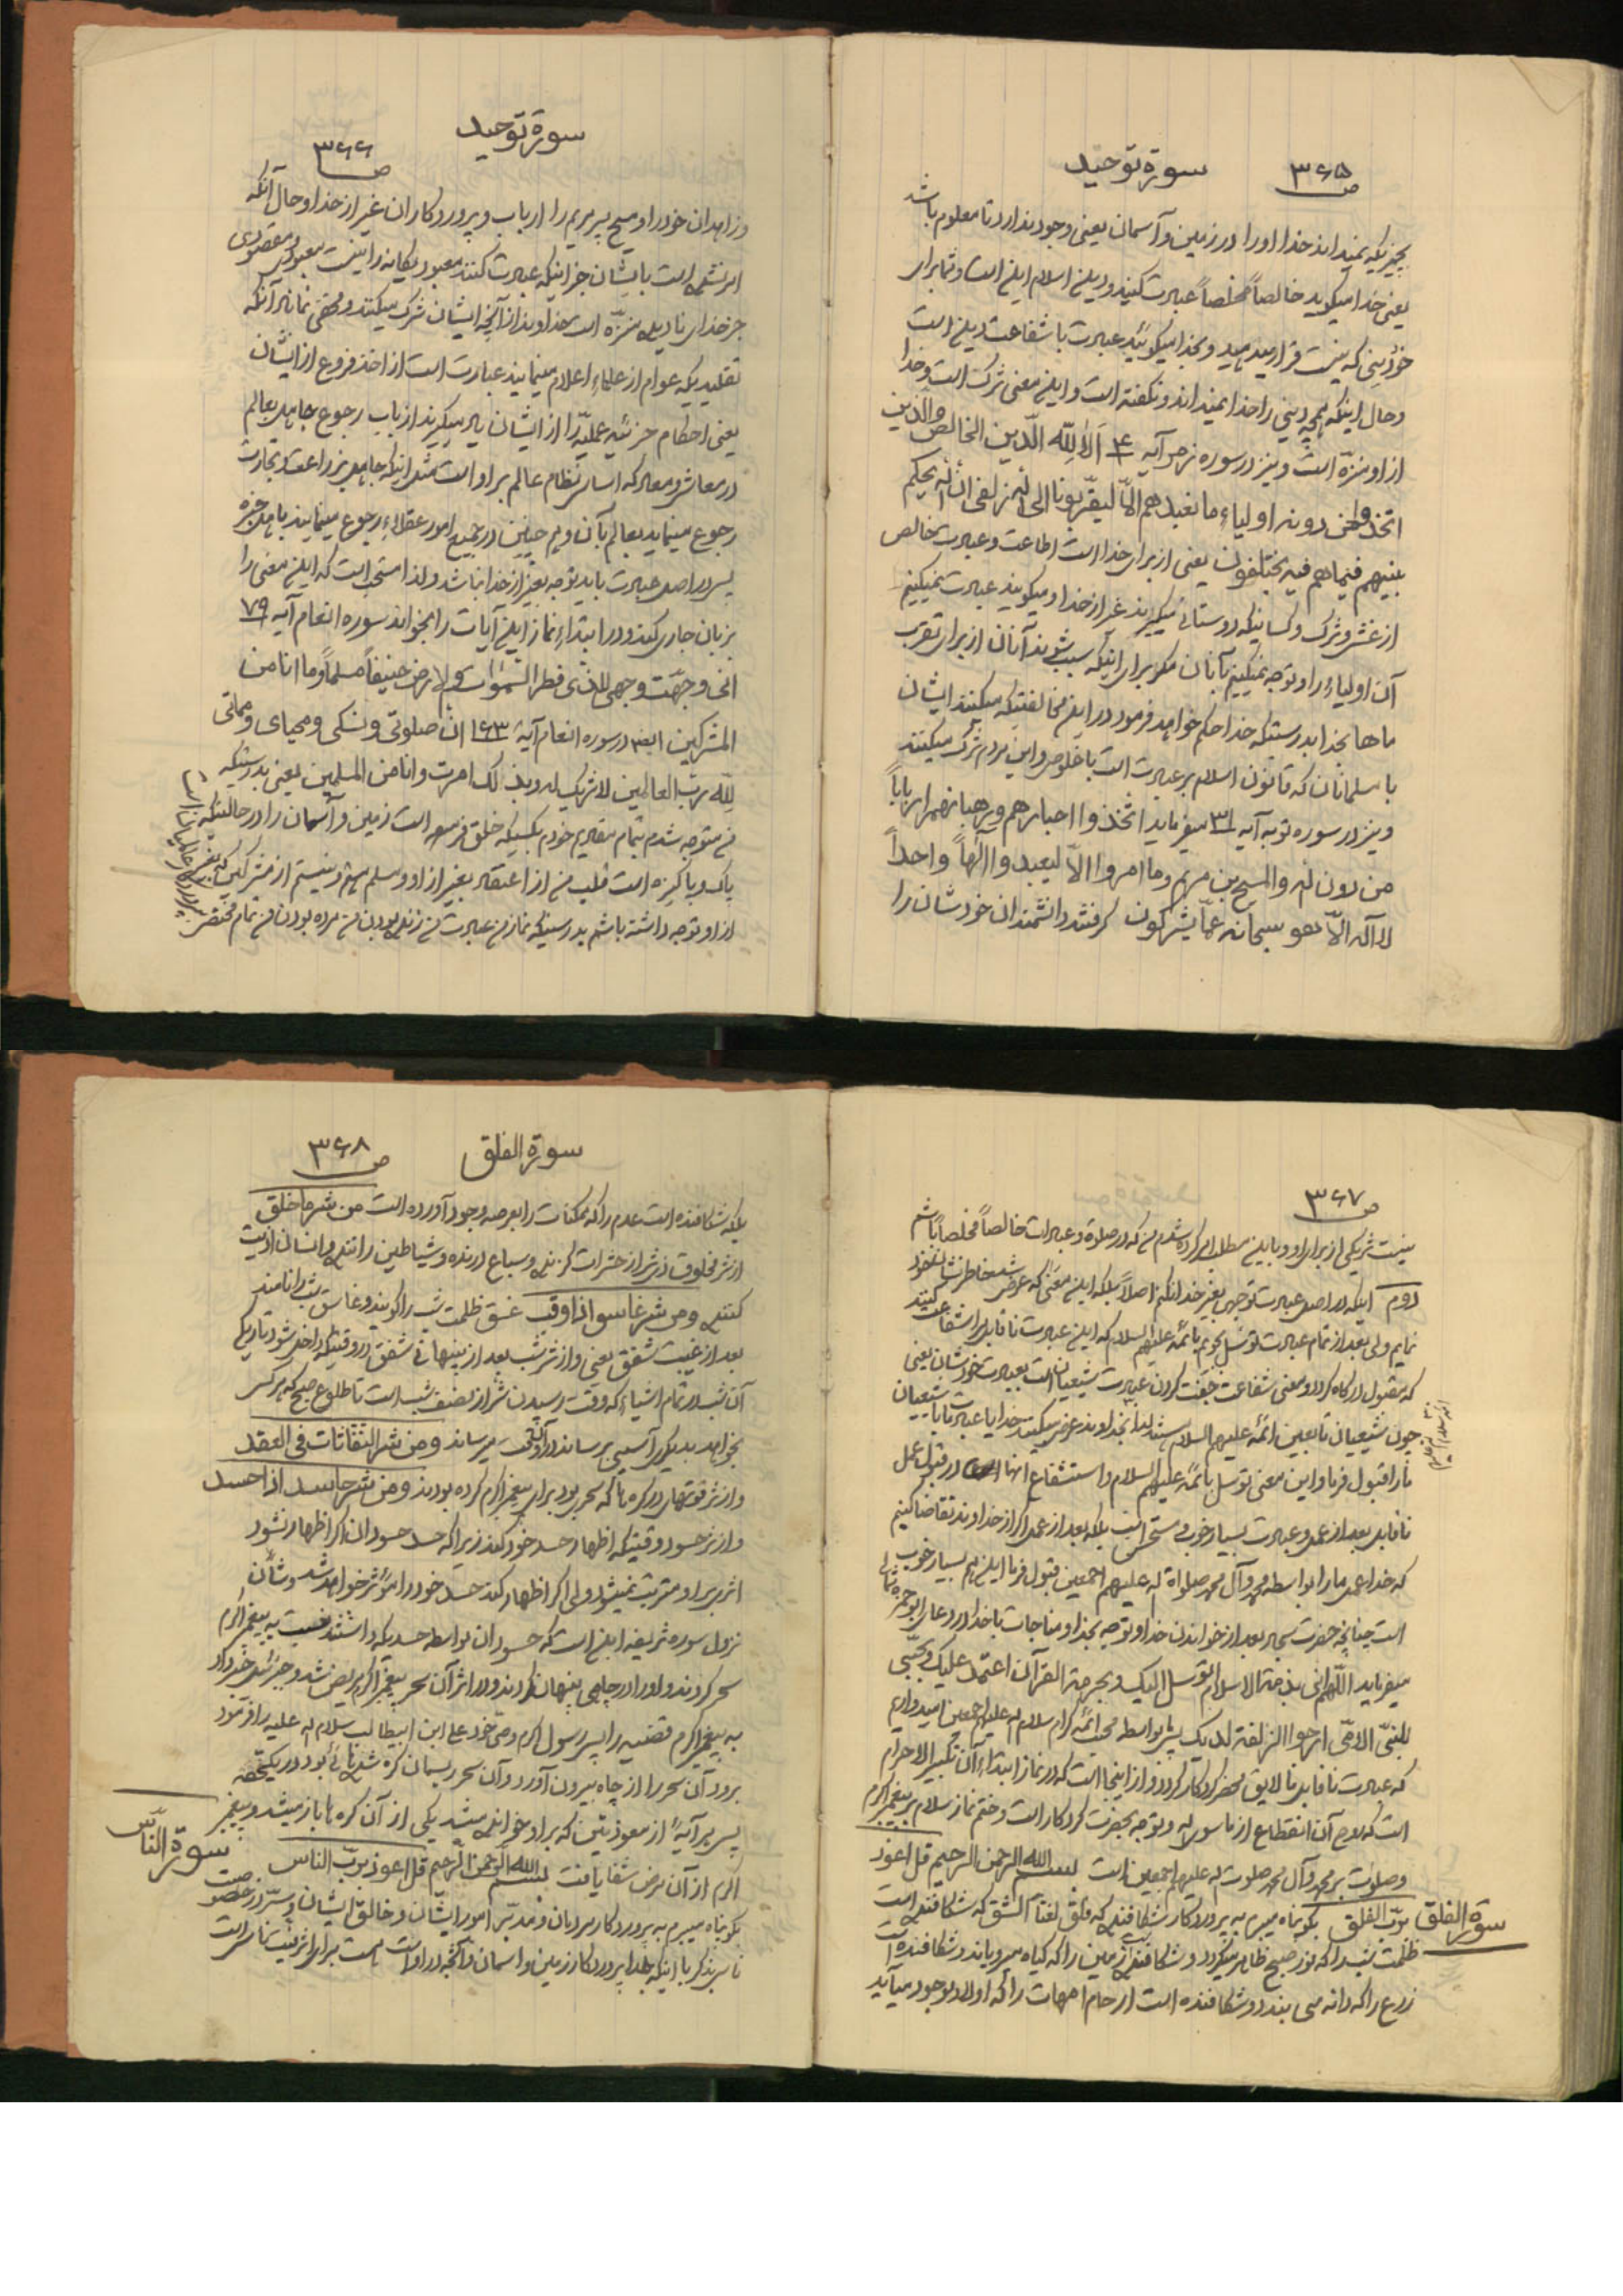 سورة توحید ص ۳۶۵
بچیزیکه نمیداند خدا او را در زمین و آسمان یعنی وجود ندارد تا معلوم باشد
یعنی خدا میگوید خالصاً مخلصاً عبادت کنید و دین اسلام این است و شما برای
خود دینی که نیست قرار میدهید و بخدا میگوئید عبادت با شفاعت دین است
و حال اینکه همچه دینی را خدا نمیداند و نگفته است و این معنی شرک است و خدا
از او منزّه است و نیز در سوره زمر آیه ۴ اَلا لِلّه الدّین الخالص والّذین
اتخذوا من دونه اولیاء ما نعبدهم الاّ لیقرّبونا الی الله زلفی ان الله یحکم
بینهم فیما هم فیه یختلفون یعنی از برای خدا است اطاعت و عبادت خالص
از غش و شرک و کسانیکه دوستانی میگیرند غیر از خدا و میگویند عبادت نمیکنیم
آن اولیاء را و توجه نمیکنیم بآنان مگر برای اینکه سبب شوند آنان از برای تقرب
ماها بخدا بدرستیکه خدا حکم خواهد فرمود در این مخالفتیکه میکنند ایشان
با مسلمانان که قانون اسلام بر عبادت است با خلوص و این مردم شرک میکنند
و نیز در سوره توبه آیه ۳۱ میفرماید اتّخذوا احبارهم و رهبانهم ارباباً
من دون الله والمسیح بن مریم وما امروا الاّ لیعبدوا الهاً واحداً
لا آله الاّ هو سبحانه عمّا یشرکون گرفتند دانشمندان خودشان را
سورة توحید ص ۳۶۶
و زاهدان خود را و مسیح پسر مریم را ارباب و پروردگاران غیر از خدا و حال آنکه
امر نشده است بایشان جز اینکه عبادت کنند معبود یگانه را نیست معبودی و مقصودی
جز خدای نادیده منزّه است خداوند از آنچه ایشان شرک میکنند و مخفی نماند آنکه
تقلیدیکه عوام از علماء اعلام مینمایند عبارت است از اخذ فروع از ایشان
یعنی احکام جزئیه عملیّه را از ایشان یاد میگیرند از باب رجوع جاهل بعالم
در معاش و معاد که اساس نظام عالم بر او است مثل اینکه جاهل بزراعت و تجارت
رجوع مینماید بعالم بآن و هم چنین در جمیع امور عقلاء رجوع مینمایند باهل خبره
پس در اصل عبادت باید توجه بغیر از خدا نباشد ولذا مستحب است که این معنی را
بزبان جاری کند و در ابتداء نماز این آیات را بخواند سوره انعام آیه ۷۹
انی وجهّت وجهی للذی فطر السّموات والارض حنیفاً مسلماً وما انا من
المشرکین ایضا در سوره انعام آیة ۱۶۳ انّ صلوتی ونسکی ومحیای ومماتی
لِلّه ربّ العالمین لا شریک له وبذلک امرت وانا من المسلمین یعنی بدرستیکه
من متوجه شدم بتمام مقادیم خودم بکسیکه خلق فرموده است زمین و آسمان را در حالتیکه
پاک و پاکیزه است قلب من از اعتقاد بغیر از او و مسلم هستم و نیستم از مشرکین که بغیر
از او توجه داشته باشم بدرستیکه نماز من عبادت من زنده بودن من مرده بودن من تمام مختص
پروردگار عالمیان است
ص ۳۶۷
نیست شریکی از برای او و باین مطلب امر کرده شدم من که در صلوة و عبادات خالصاً مخلصاً باشم
دوم اینکه در اصل عبادت توجهی بغیر خدا نکنم اصلاً بلکه این معنی که عرض شد خاطر نشان خود
نمایم ولی بعد از تمام عبادت توسل بجویم بائمّه علیهم السلام که این عبادت ناقابل را شفاعت کنند
که مقبول درگاه گردد و معنی شفاعت جفت کردن عبادت شیعیان است بعبادت خودشان یعنی
چون شیعیان تابعین ائمّه علیهم السلام هستند لذا بخداوند عرض میکنند خدایا عبادت ما با شیعیان
ما را قبول فرما و این معنی توسل بائمّه علیهم السلام و استشفاع انها است در قبول عمل
ناقابل بعد از عمل و عبادت بسیار خوب و مستحسن است بلکه بعد از عمل اگر از خداوند تقاضا کنیم
که خدا عمل ما را بواسطه محمد وآل محمد صلواة الله علیهم اجمعین قبول فرما این هم بسیار خوب
است چنانچه حضرت سجاد بعد از خواندن خدا و توجه بخدا و مناجات با خدا در دعای ابوحمزه ثمالی
میفرماید اللّهم انی بذمة الاسلام اتوسل الیک وبحرمة القرآن اعتمد علیک وبحبّی
للنبیّ الامّی ارجوا الزلفة لدیک پس بواسطه محبت ائمّه کرام سلام الله علیهم اجمعین امیدواریم
که عبادت ناقابل ما لایق محضر کردگار گردد و از اینجا است که در نماز ابتداء آن تکبیر الاحرام
است که روح آن انقطاع از ما سوی الله و توجه بحضرت کردگار است و ختم نماز سلام بر پیغمبر اکرم
و صلوات بر محمد وآل محمد صلوات الله علیهم اجمعین است بسم الله الرحمن الرحیم قل اعوذ
سورة الفلق بربّ الفلق بگو پناه میبرم به پروردگار شکافنده که فلق لغتاً الشق که شکافنده است
ظلمت شب را که نور صبح ظاهر میگردد و شکافنده است زمین را که گیاه میرویاند و شکافنده است
زرع را که دانه می بندد و شکافنده است ارحام امهات را که اولاد بوجود میآید
سورة الفلق ص ۳۶۸
بلکه شکافنده است عدم را که ممکنات را بعرصه وجود آورده است من شر ما خلق
از شر مخلوقات ذی شر از حشرات گزنده و سباع درنده و شیاطین رانده و انسان اذیت
کننده ومن شر غاسق اذا وقب غسق ظلمت شب را گویند و غاسق شب را نامند
بعد از غیبت شفق یعنی و از شر شب بعد از پنهانی شفق در وقتیکه داخل شود تاریکی
آن شب در تمام اشیاء که وقت رسیدن شر از نصف شب است تا طلوع صبح که هر کس
بخواهد بدیگری آسیبی برساند در آنوقت میرساند ومن شر النفّاثات فی العقد
و از شر فوتهای در گره ها که سحر بود برای پیغمبر اکرم کرده بودند ومن شر حاسد اذا حسد
و از شر حسود وقتیکه اظهار حسد خود کند زیرا که حسد حسودان اگر اظهار نشود
اثر بر او مترتب نمیشود ولی اگر اظهار کند حسد خود را مؤثر خواهد شد و شأن
نزول سوره شریفه این است که حسودان بواسطه حسدیکه داشتند نسبت به پیغمبر اکرم
سحر کردند و او را در چاهی پنهان کردند و در اثر آن سحر پیغمبر اکرم مریض شد و جبرئیل خبر داد
به پیغمبر اکرم قضیه را پس رسول اکرم وصی خود علی ابن ابیطالب سلام الله علیه را فرمود
برود آن سحر را از چاه بیرون آورد و آن سحر ریسمان گره شده هائی بود در یکتخته
پس هر آیه ای از معوذتین که بر او خوانده میشد یکی از آن گره ها باز میشد و پیغمبر
اکرم از آن مرض شفا یافت بسم الله الرحمن الرحیم قل اعوذ بربّ الناس سورة الناس
بگو پناه میبرم به پروردگار مردمان و مدبّر امور ایشان و خالق ایشان و سرّ در خصوصیت
ناس بذکر با اینکه خدا پروردگار زمین و اسمان و آنچه در او است هست برای اشرفیت ناس است